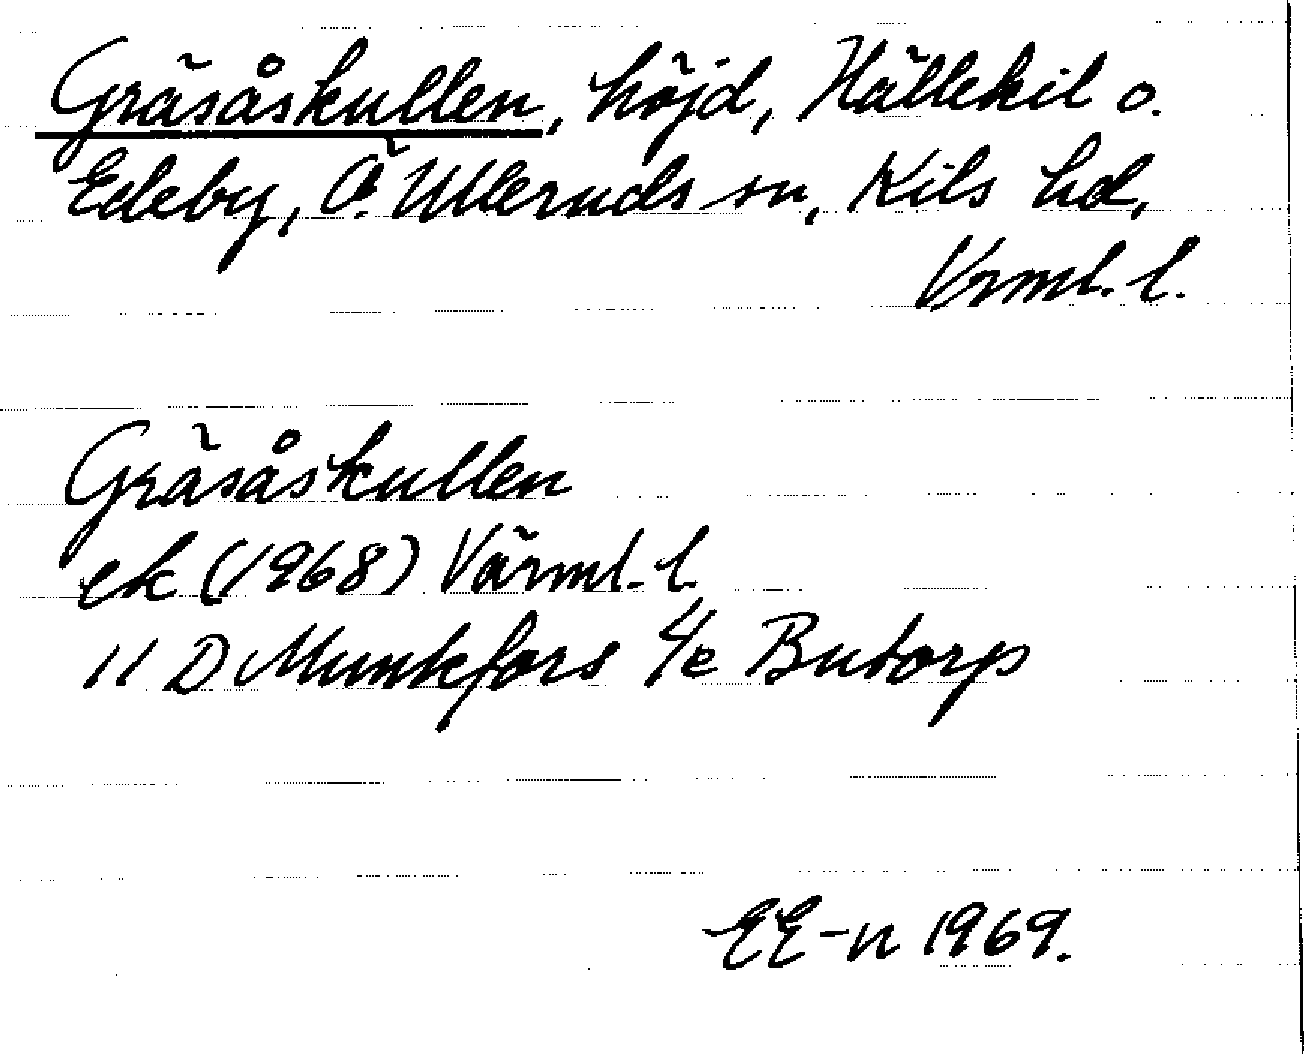 Gräsåskullen, höjd, Hällekil o.
Edeby, Ö. Ulleruds sn, Kils hd,
Vrml. l.
Gräsåskullen
ek (1968) Värml. l
11 D Munkfors 4/e Butorp
EE-n 1969.